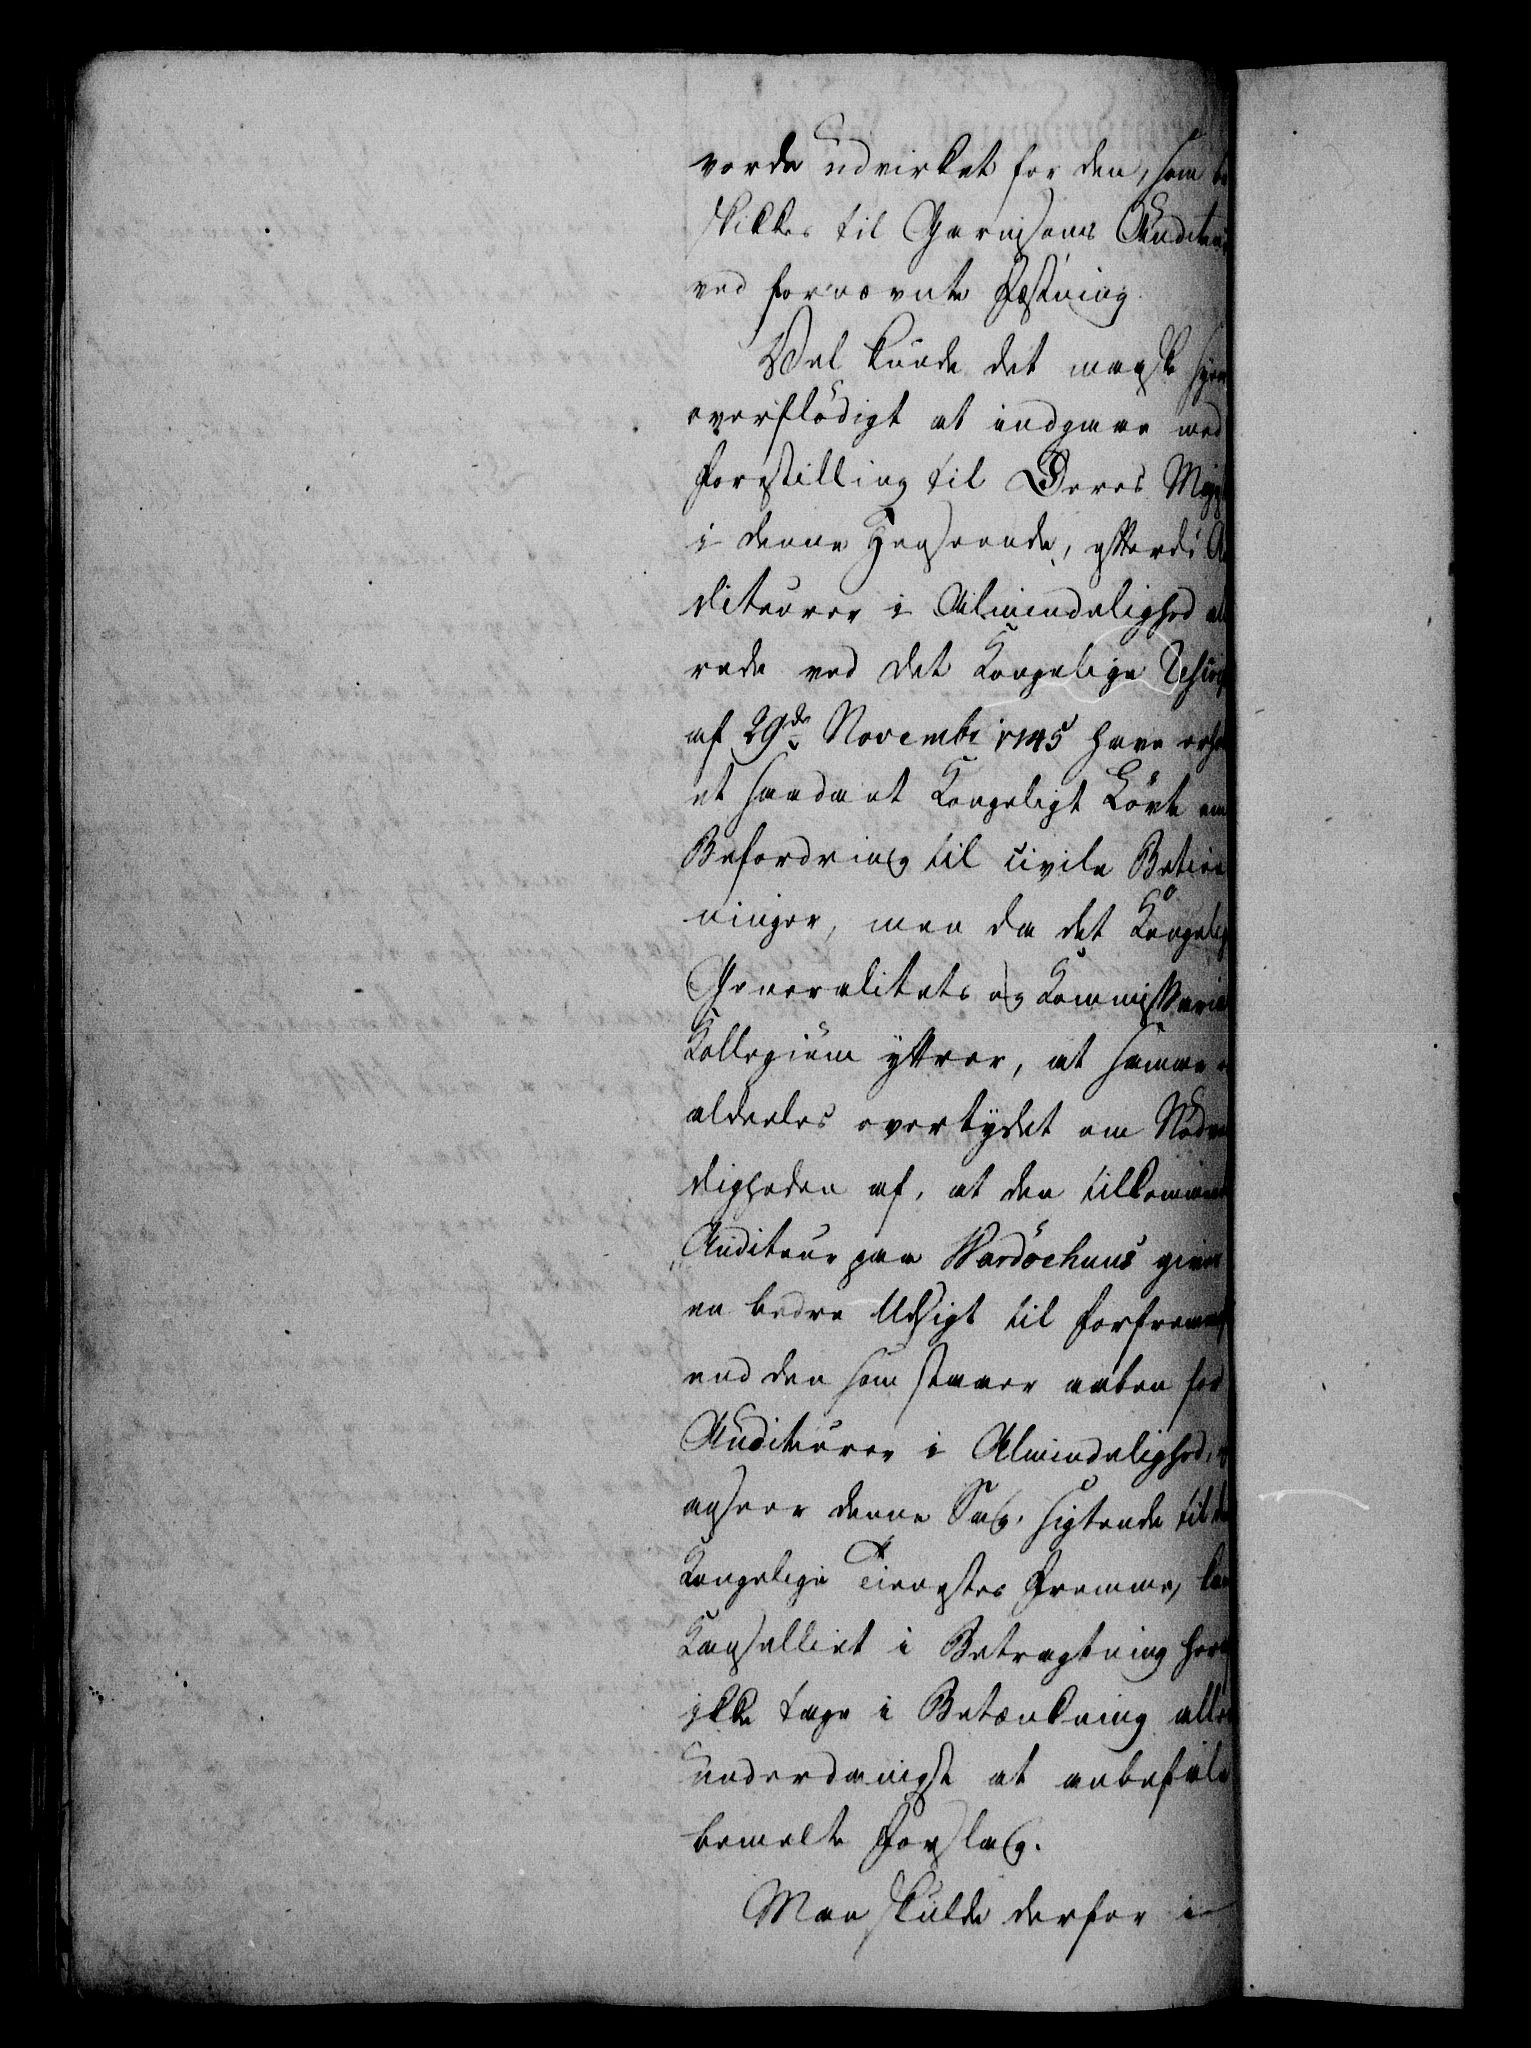 vorde udvirket for den, som be
skikkes til Garnisons Auditeur
ved fornævnte Fæstning.
Vel kunde det maaskee synes
overflödigt at indgaae med
Forestilling til Deres Majst
i denne Henseende, efterdi Au
diteurer i Almindelighed alle
rede ved det Kongelige Rescript
af 29de Novembr 1745 have erholdt
et saadant Kongeligt Löfte om
Befordring til civile Betie
ninger, men da det Kongelige
Generalitets og Kommissariats
Kollegium yttrer, at samme er
aldeeles overtydet om Nödven
digheden af, at den tilkommende
Auditeur paa Wardöehuus gives
en bedre Udsigt til Forfremmelse
end den som staaer aaben for
Auditeurer i Almindelighed, og
anseer denne Sag sigtende til den
Kongelige Tienestes Fremme, kan
Kancelliet i Betragtning heraf
ikke tage i Betænkning aller
underdanigst at anbefale
bemelte Forslag.
Man skulde derfor i